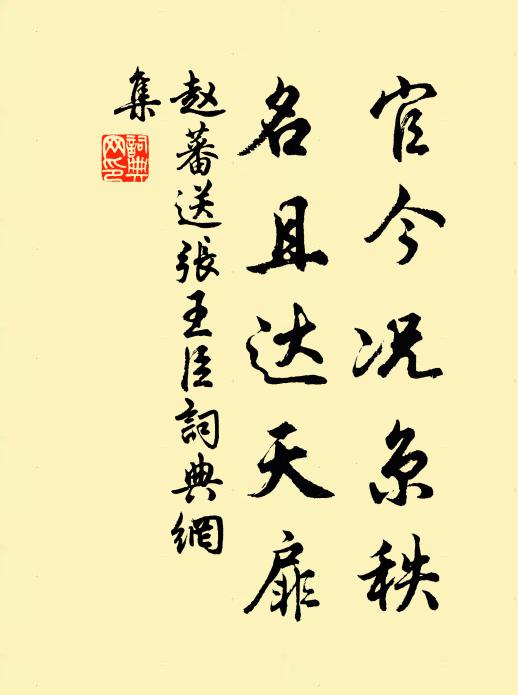 官今况京秩
名且达天扉
赵蕃送張王臣詞典網
集
詞典網印